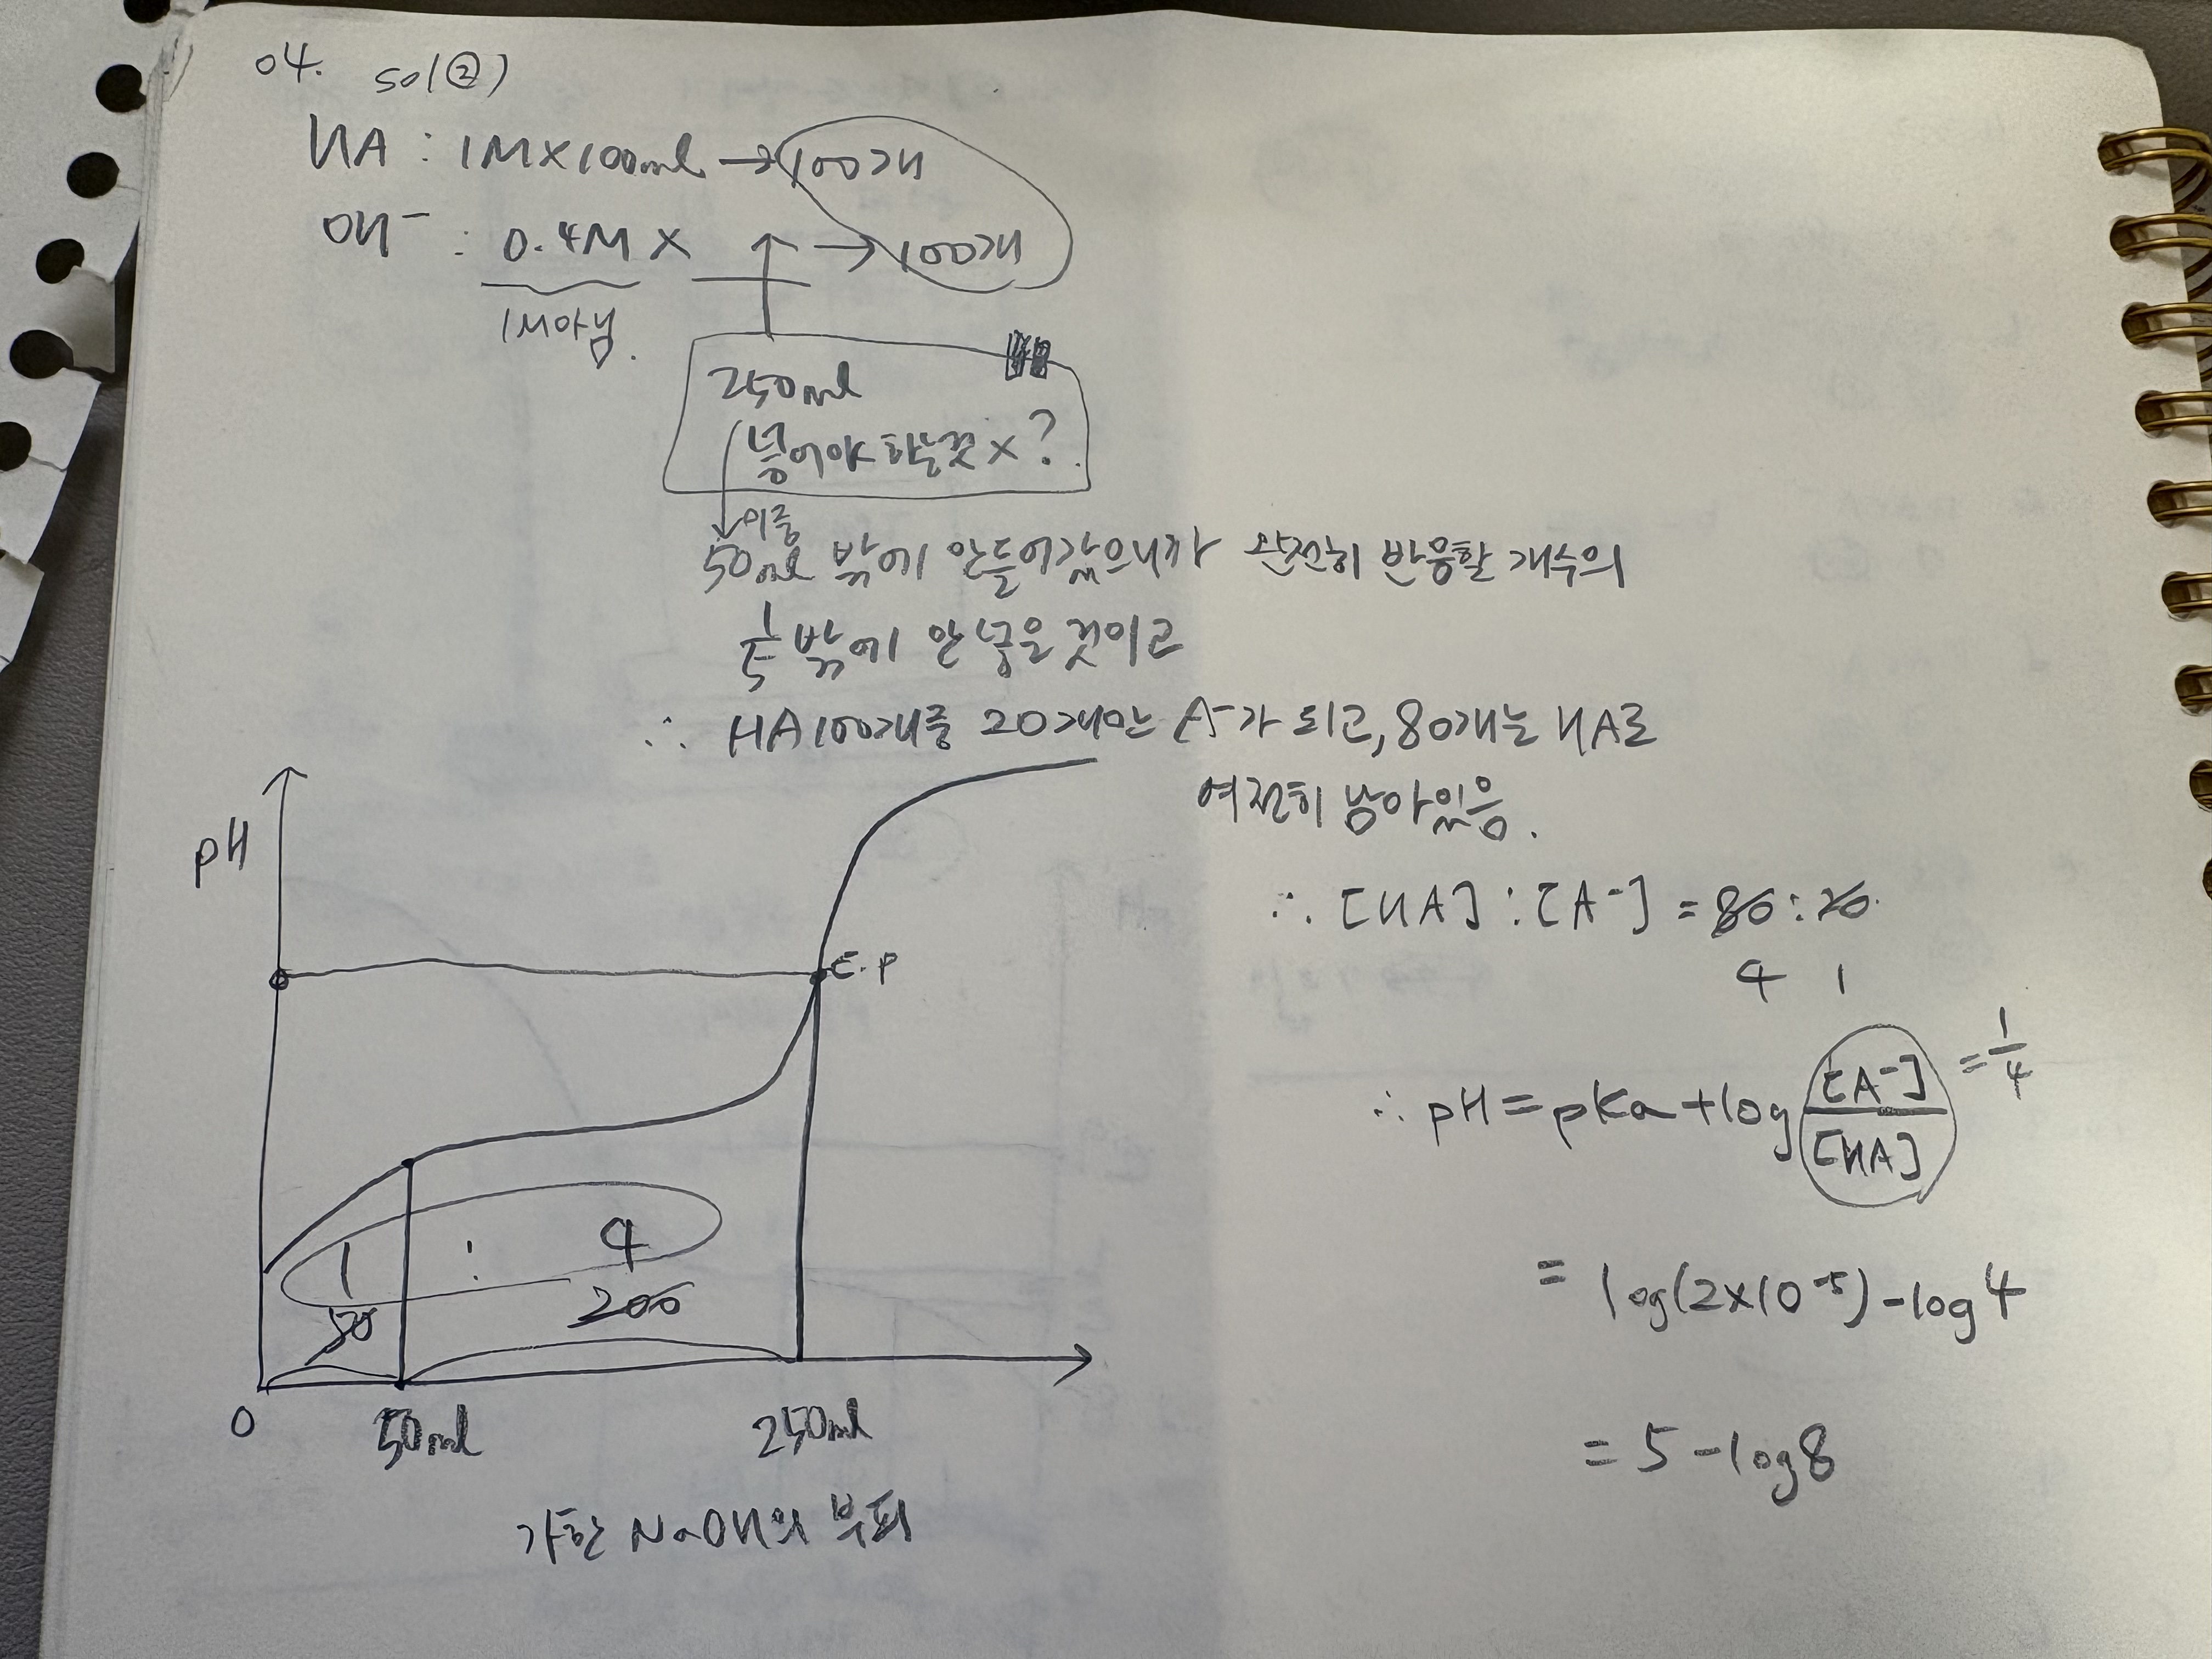 04. sol(②)
HA : 1M×100ml → 100개
OH⁻ : 0.4M × → 100개
1M아님.
250ml
넣어야 하는것 ×?
이중
50ml 밖에 안들어갔으니까 완전히 반응할 개수의
1/5 밖에 안 넣은 것이고
∴ HA 100개중 20개만 A⁻가 되고, 80개는 HA로
여전히 남아있음.
∴ [HA] : [A⁻] = 80 : 20
4 1
∴ pH = pKa + log [A⁻]/[HA] = 1/4
= log(2×10⁻⁵) - log4
= 5 - log8
pH
E.P
1 : 4
50 200
0 50ml 250ml
가한 NaOH의 부피